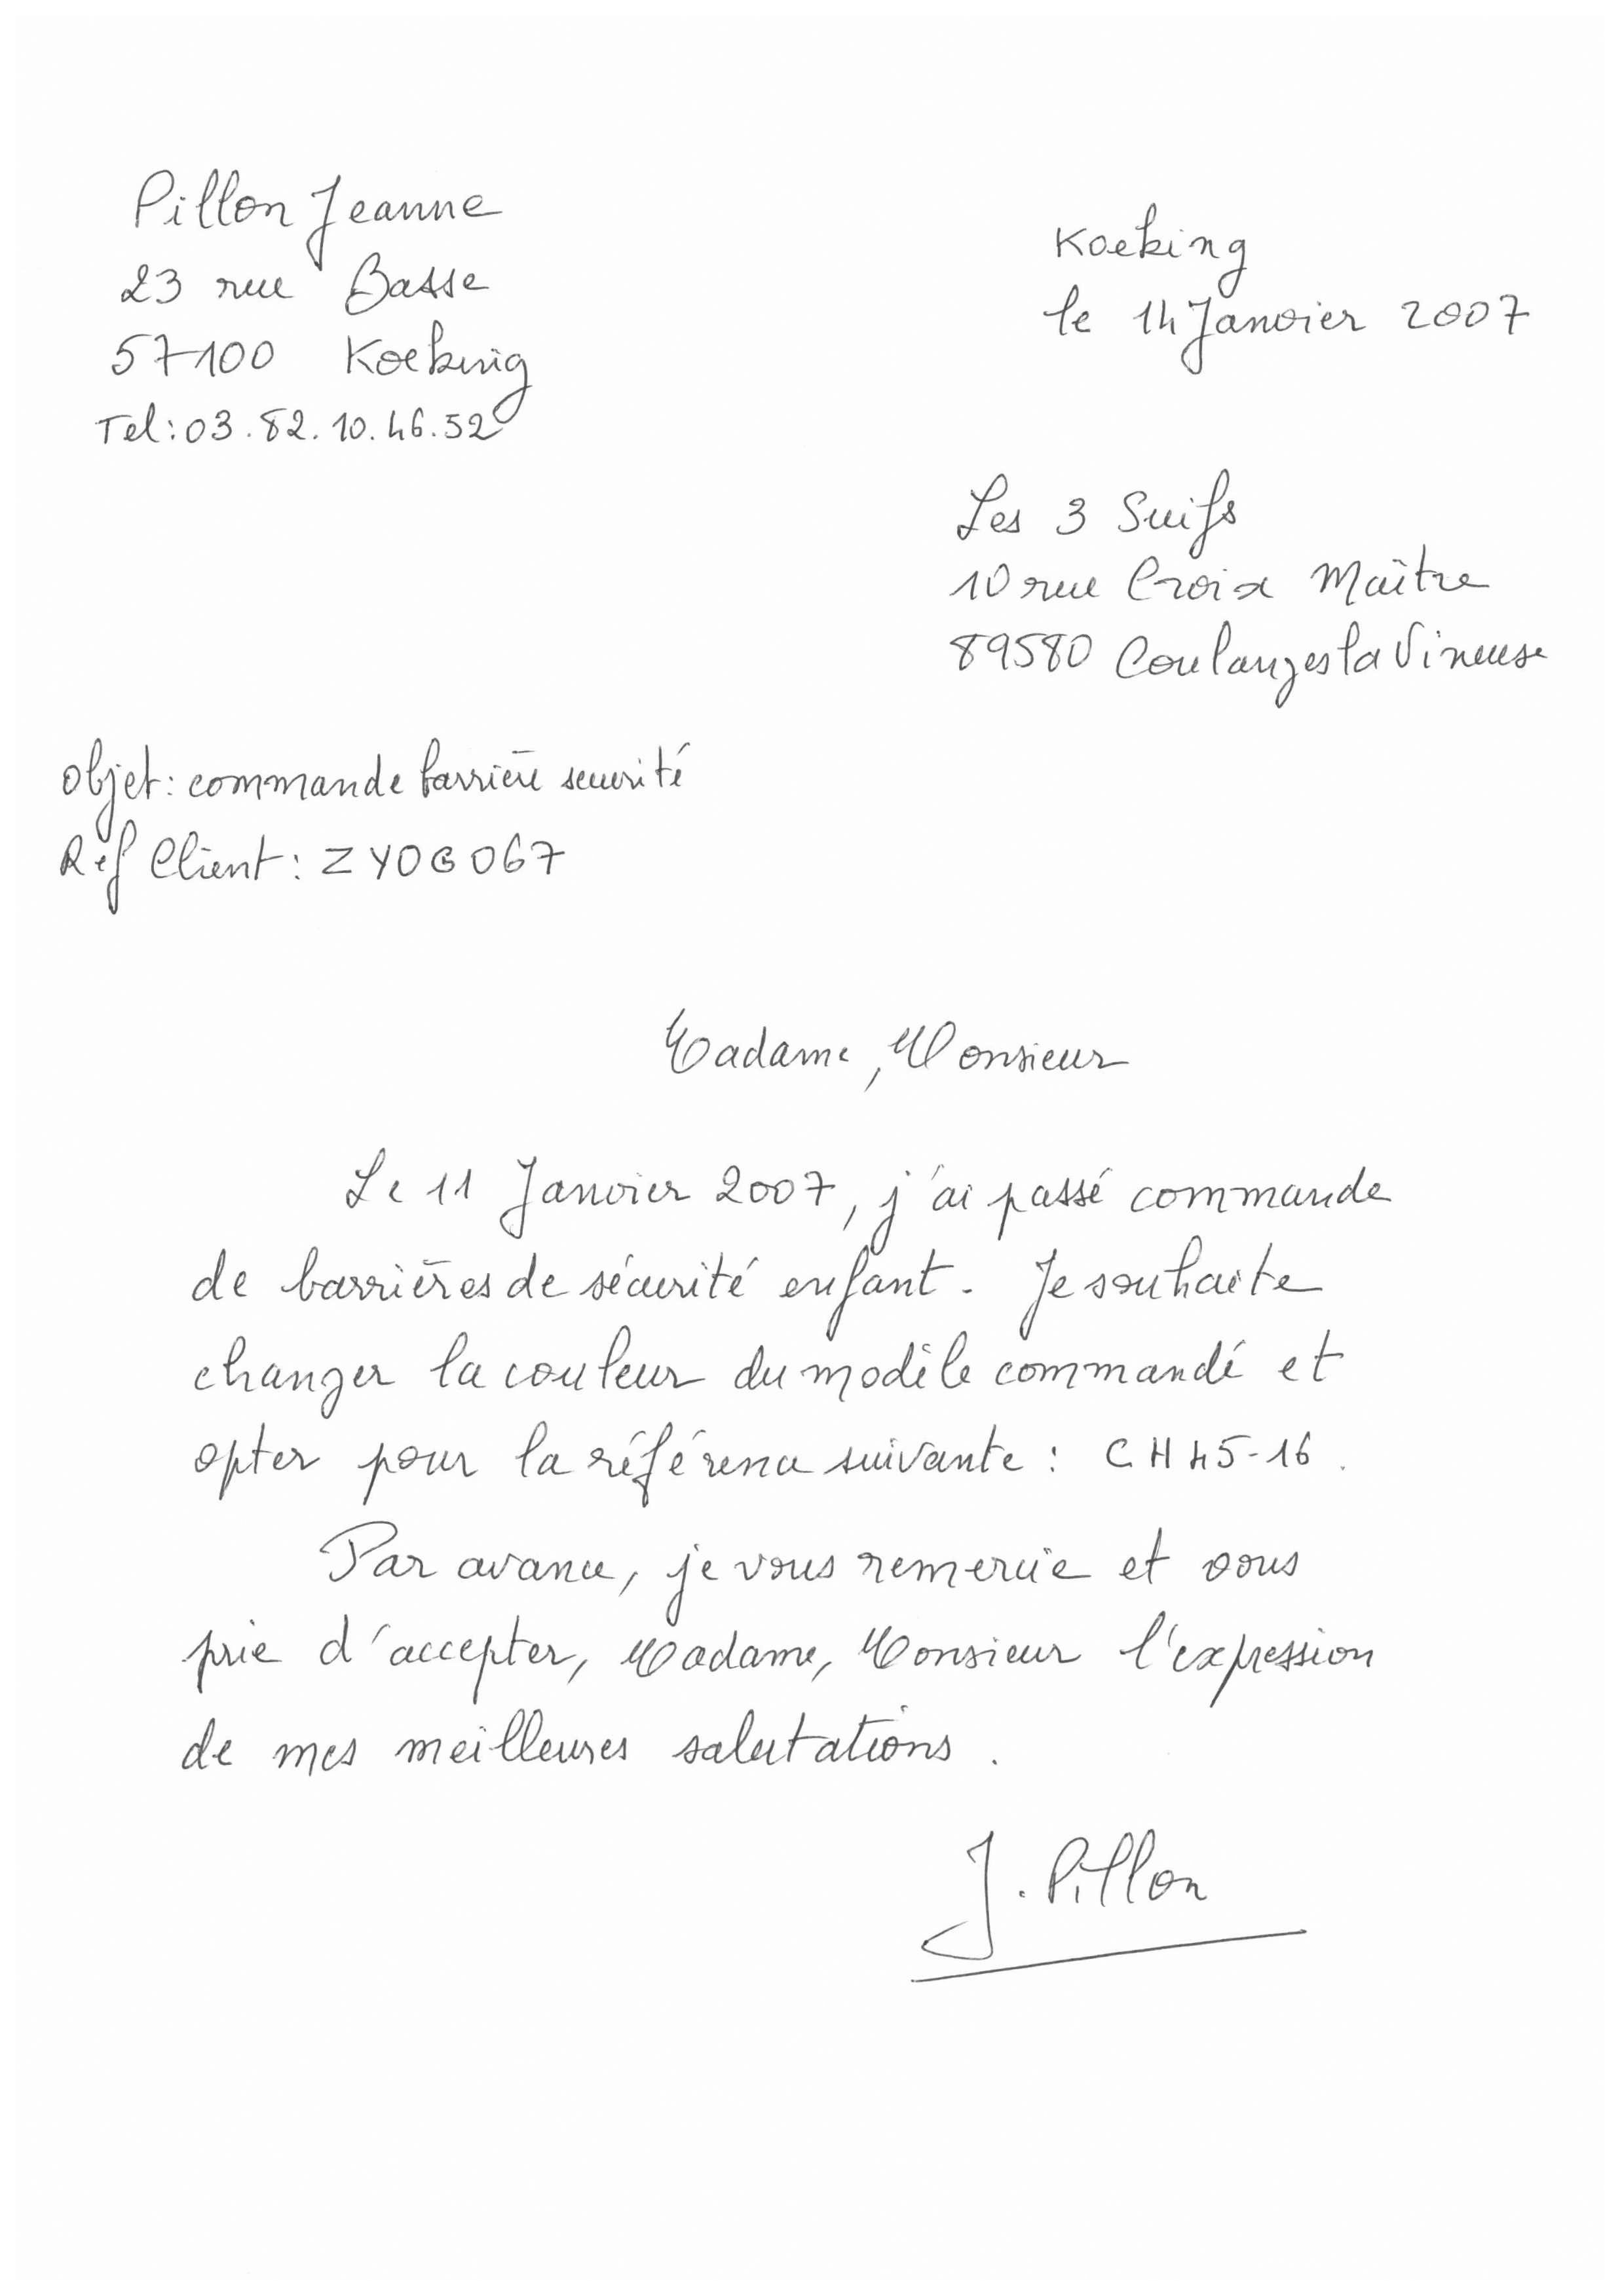 Pillon Jeanne
23 rue Basse
57100 Koeking
Tel: 03.82.10.46.52
Koeking
le 14 Janvier 2007
Les 3 Suifs
10 rue Croix Maître
89580 Coulanges la Vineuse
Objet: commande barrière securité
Réf Client: ZYOG067
Madame, Monsieur
Le 11 Janvier 2007, j'ai passé commande
de barrières de sécurité enfant. Je souhaite
changer la couleur du modèle commandé et
opter pour la référence suivante : CH45-16.
Par avance, je vous remercie et vous
prie d'accepter, Madame, Monsieur l'expression
de mes meilleures salutations.
J. Pillon